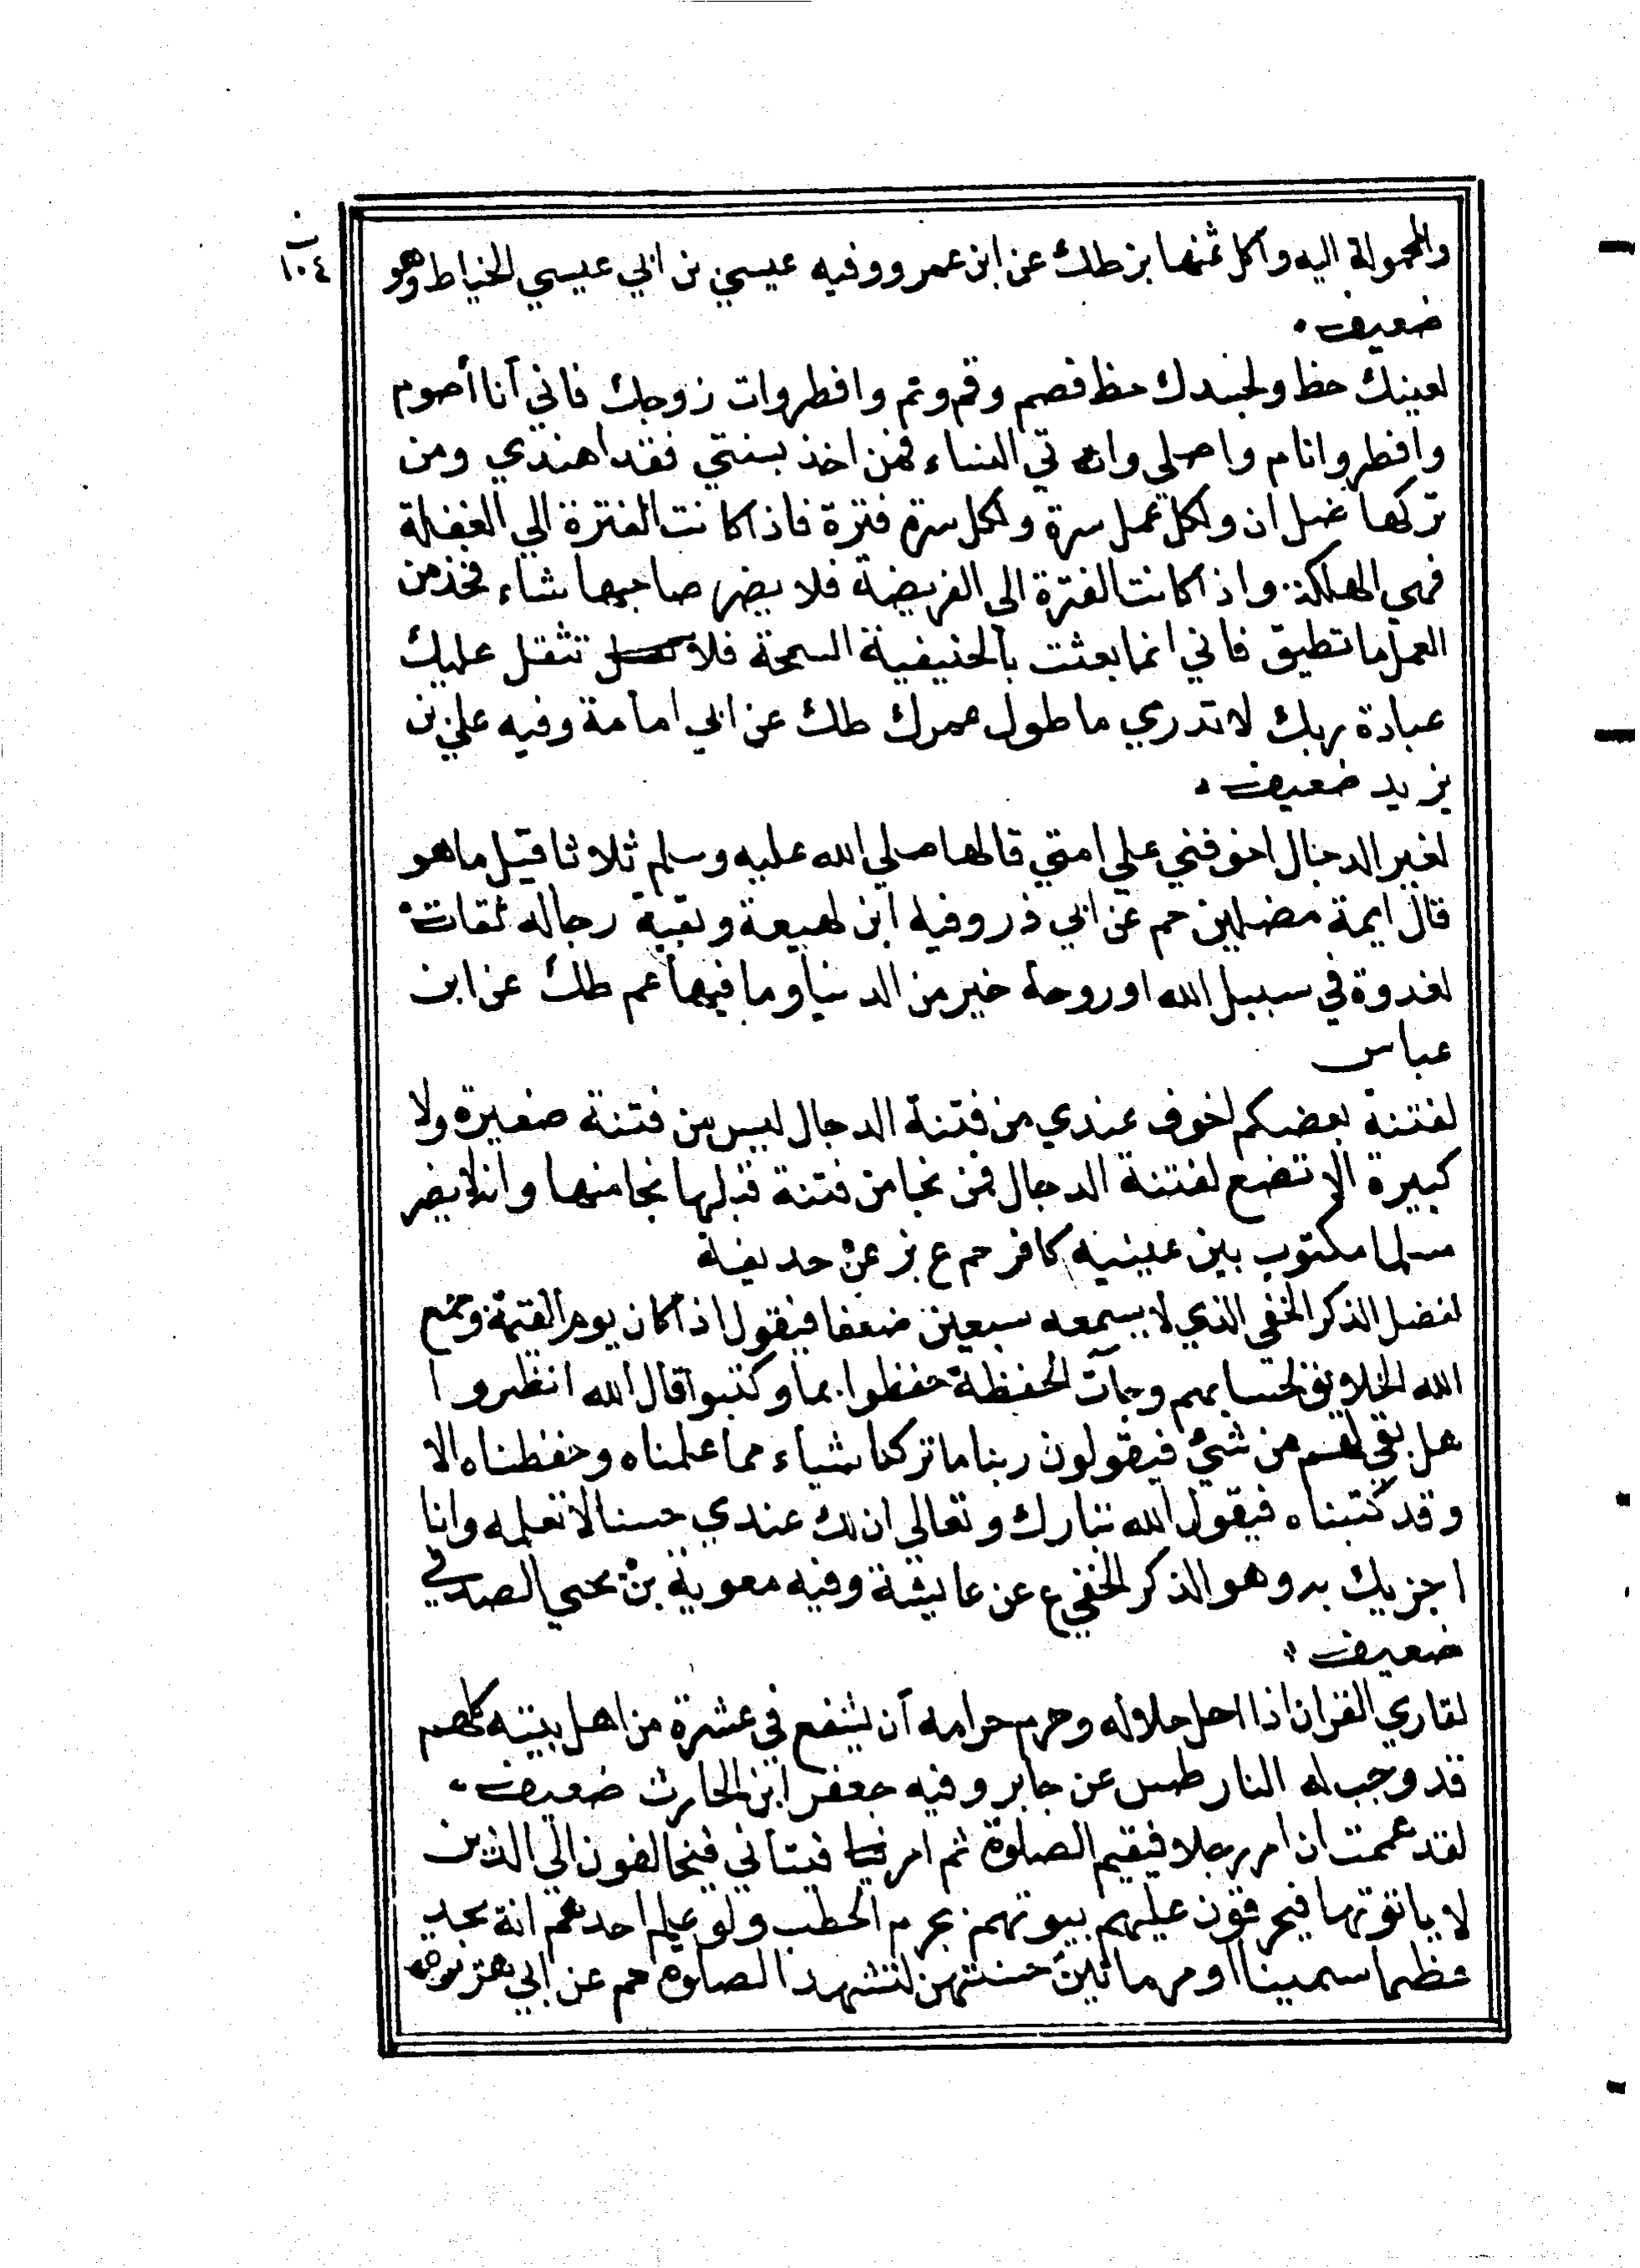 ب
١٠٤
والمحمولة اليه وآكل ثمنها بز طك عن ابن عمر ووفيه عيسي بن ابي عيسي الخياط وهو
ضعيف .
لعينك حظ ولجسدك حظ فصم وقم ونم وافطر وات زوجك فاني أنا أصوم
وافطر وانام واصلي واتي النساء فمن اخذ بسنتي فقد اهتدي ومن
تركها ضل ان ولكل عمل سرة ولكل سرة فترة فاذا كانت الفترة الي الغفلة
فهي الهلكة . واذا كانت الفترة الي الفريضة فلا يضر صاحبها شاء فخذ من
العمل ما تطيق فاني انما بعثت بالحنيفية السمحة فلا تثقل عليك
عبادة ربك لا تدري ما طول عمرك طك عن ابي امامة وفيه علي بن
يزيد ضعيف .
لغير الدجال اخوفني علي امتي قالها صلي الله عليه وسلم ثلاثا قيل ما هو
قال ايمة مضلين حم عن ابي ذر وفيه ابن لهيعة وبقية رجاله ثقات .
لغدوة في سبيل الله او روحة خير من الدنيا وما فيها عم طك عن ابن
عباس
لفتنة بعضكم اخوف عندي من فتنة الدجال ليس من فتنة صغيرة ولا
كبيرة الا تضع لفتنة الدجال فمن نجا من فتنة قبلها نجا منها وانه لا يضر
مسلما مكتوب بين عينيه كافر حم ع بز عن حديفة
لفضل الذكر الخفي الذي لا يسمعه سبعين ضعفا فيقول اذا كان يوم القيمة وجمع
الله الخلايق لحسابهم وجآت الحفظة حفظوا بما وكتبوا قال الله انظروا
هل بقي لهم من شيء فيقولون ربنا ما تركنا شياء مما علمناه وحفظناه الا
وقد كتبناه فيقول الله تبارك وتعالي ان لك عندي حسنا لا تعلمه وانا
اجزيك به وهو الذكر الخفي ع عن عايشة وفيه معوية بن يحيي الصدفي
ضعيف .
لقاري القران اذا احل حلاله وحرم حرامه أن يشفع في عشرة من اهل بيته كلهم
قد وجب له النار طس عن جابر وفيه جعفر ابن الحارث ضعيف .
لقد هممت ان امر رجلا فيقيم الصلوة ثم امر فيتاني فيخالفون الي الذين
لا ياتوتها فيحرقون عليهم بيوتهم بحرم الحطب ولو علم احدهم انة يجد
عظما سمينا او مرماتين حسنتين لتشهد الصلوة حم عن ابي هريرة